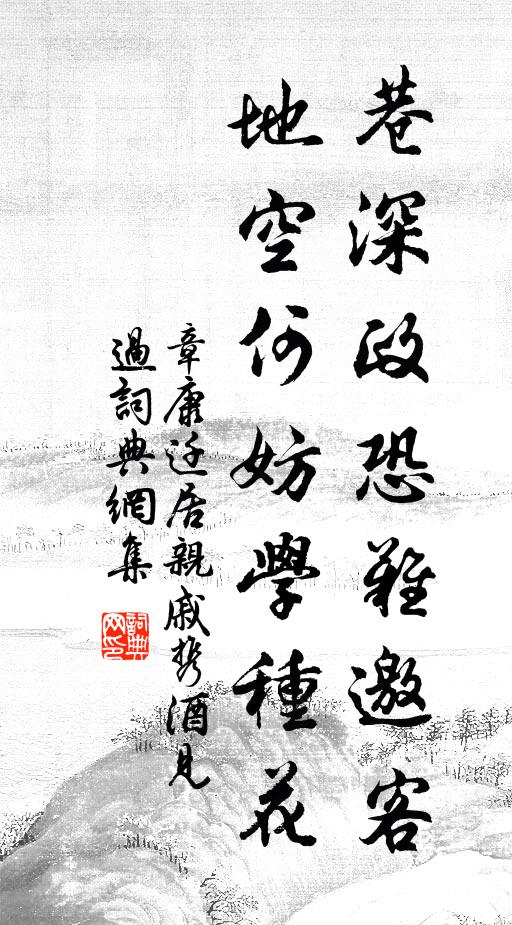 巷深政恐難邀客
地空何妨學種花
章康迁居親戚携酒見
過詞典網集
詞典
网印